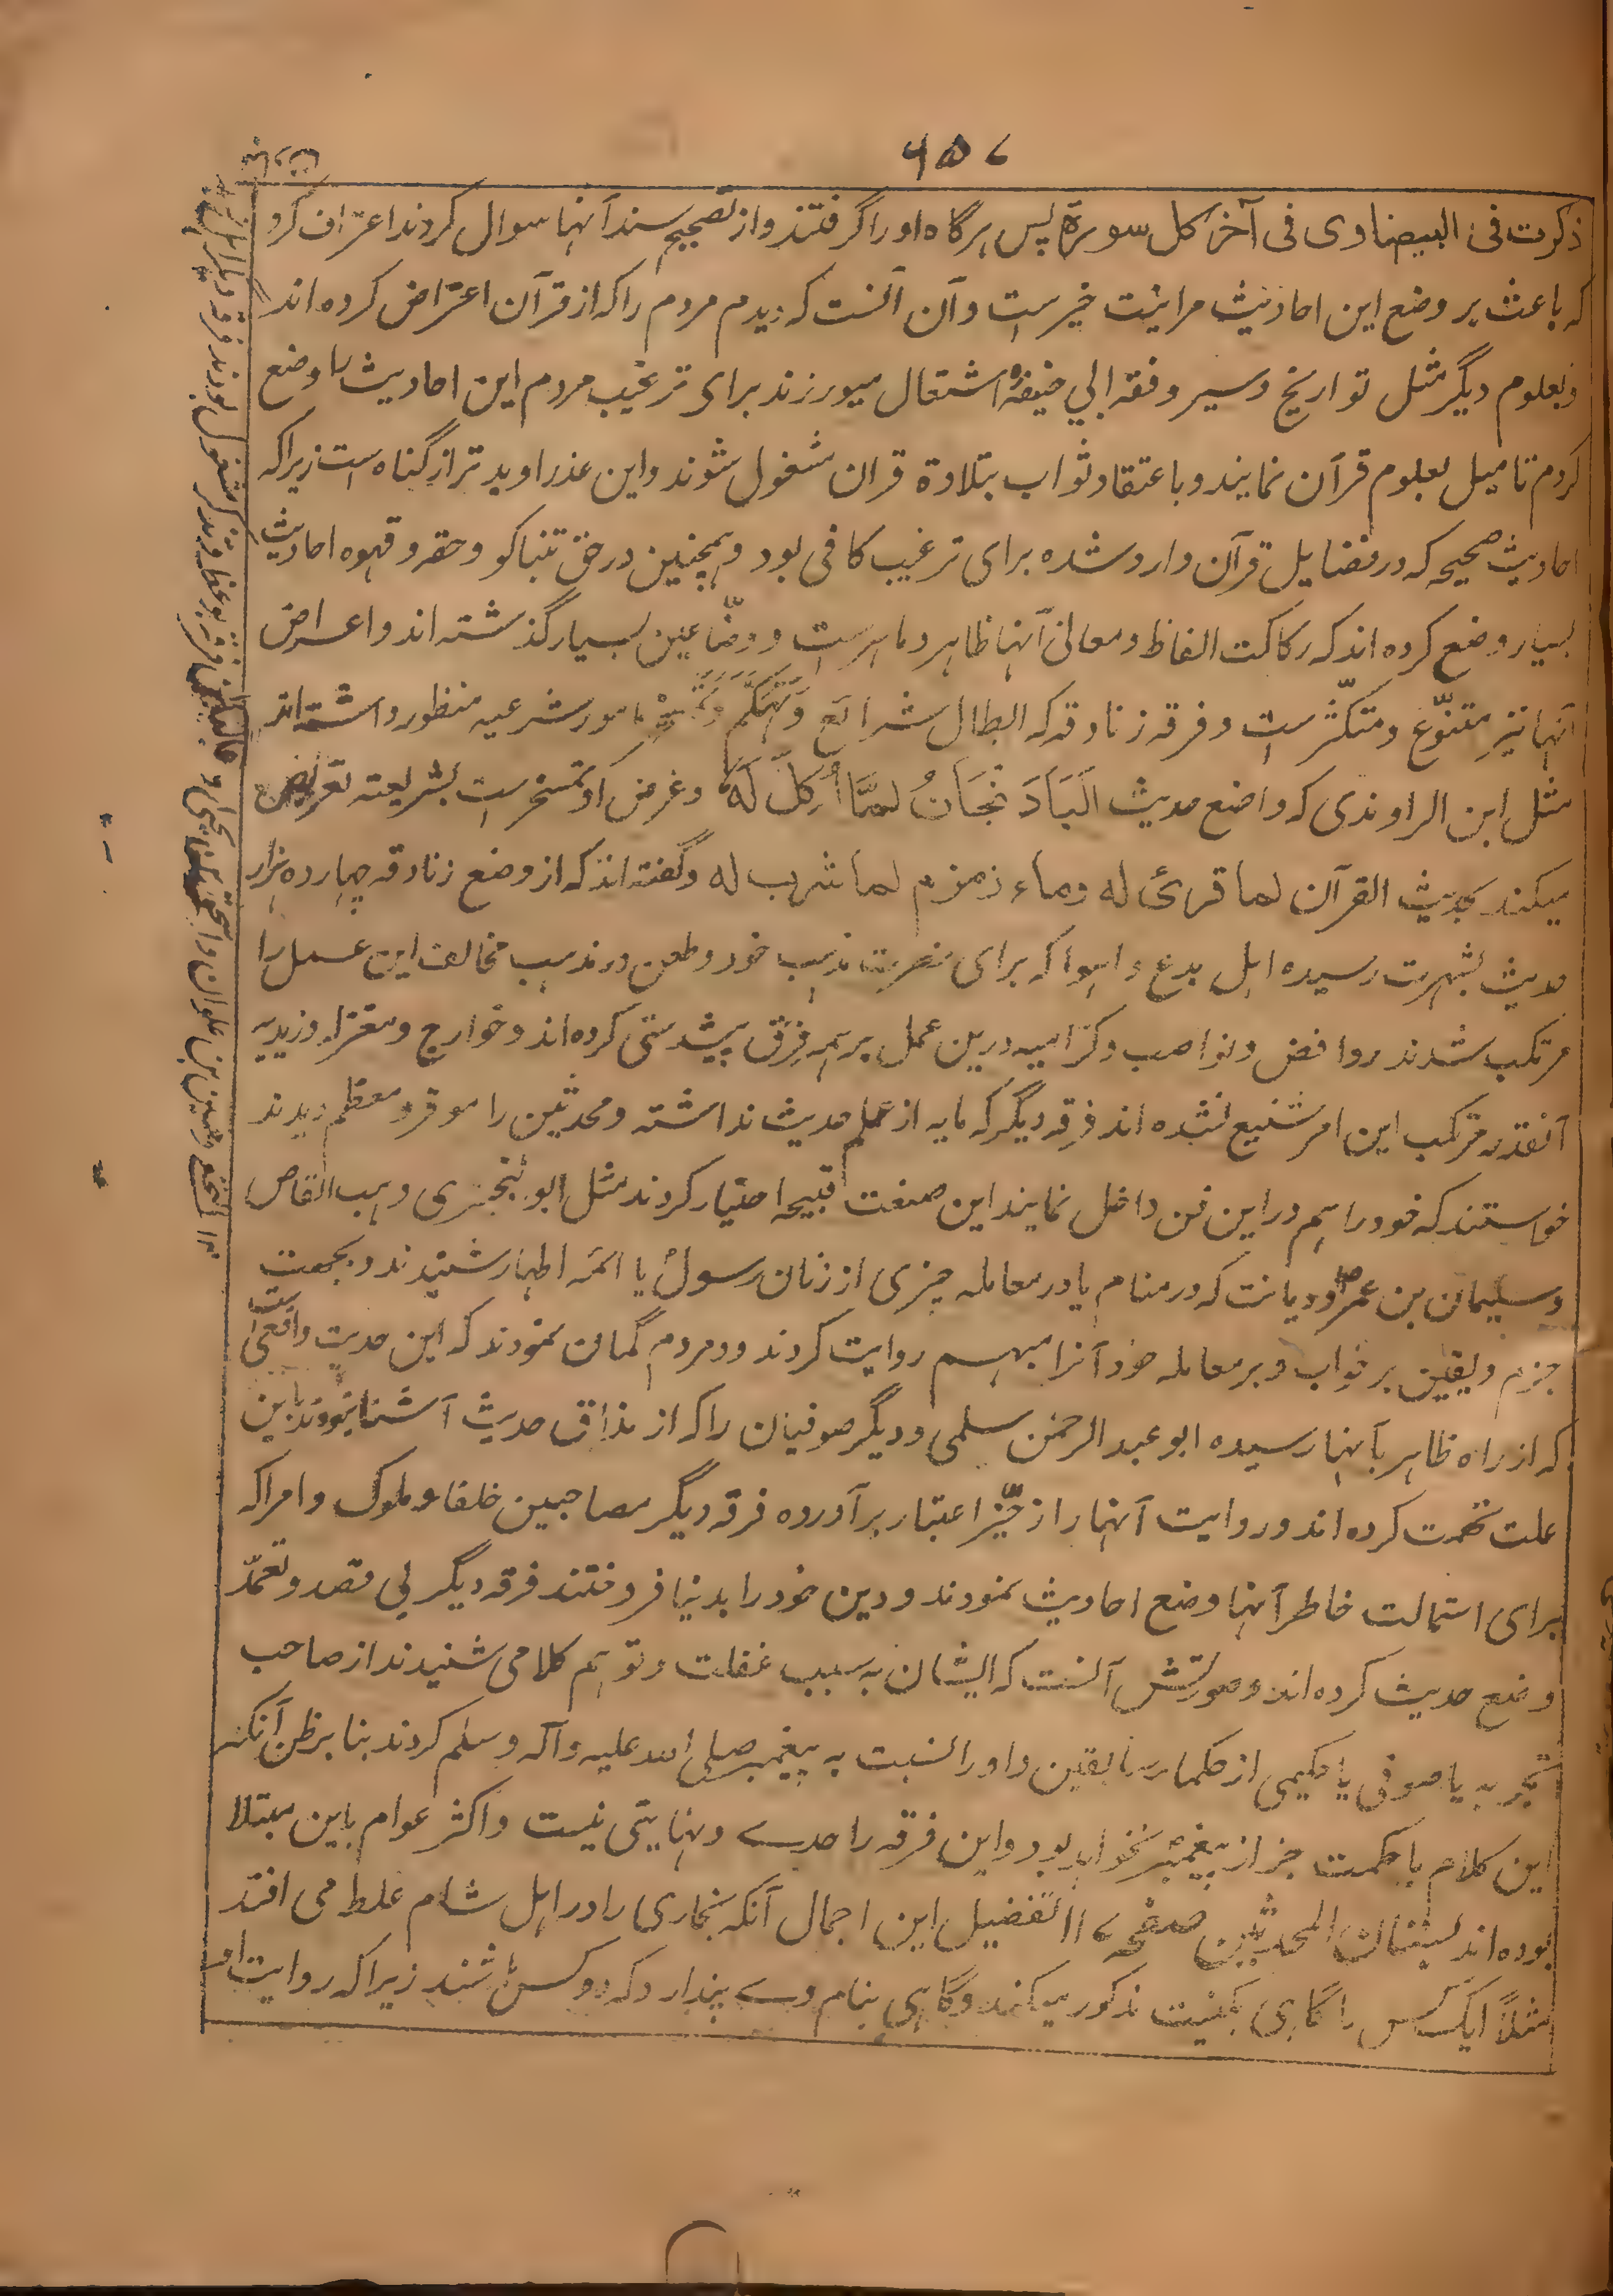 ۶۵۷
ذکرت فی البیضاوی فی آخر کل سورة پس ہرگاہ اورا گرفتند و از تصحیح سند آنہا سوال کردند اعتراف کرد
کہ باعث بر وضع این احادیث مرا نیت خیر ست و آن آنست کہ دیدم مردم را کہ از قرآن اعتراض کردہ اند
و بعلوم دیگر مثل تواریخ و سیر و فقہ ابي حنیفہ اشتغال میورزند برای ترغیب مردم این احادیث را وضع
کردم تا میل بعلوم قرآن نمایند و باعتقاد ثواب بتلاوة قران مشغول شوند و این عذر او بدتر از گناہ ست زیرا کہ
احادیث صحیحہ کہ در فضایل قرآن وارد شدہ برای ترغیب کافی بود و ہمچنین در حق تنباکو و حقہ و قہوہ احادیث
بسیار وضع کردہ اند کہ رکاکت الفاظ و معانی آنہا ظاہر و ماہر ست و وضّاعین بسیار گذشتہ اند و اعراض
آنہا نیز متنوّع و متکثّر ست و فرقہ زنادقہ کہ ابطال شرائع و تہکّم بامور شرعیہ منظور داشتہ اند
مثل ابن الراوندی کہ واضع حدیث اَلبَادَنجَانُ لِمَا اُکِلَ لَہُ و غرض او تمسخر ست بشریعتہ تعریض
میکند بحدیث القرآن لما قرئ له وماء زمزم لما شرب له و گفتہ اند کہ از وضع زنادقہ چہاردہ ہزار
حدیث بشہرت رسیدہ اہل بدع و اہوا کہ برای نصرت مذہب خود و طعن در مذہب مخالف این عمل را
مرتکب شدند روافض و نواصب و کرامیہ درین عمل بر ہمہ فِرَق پیشدستی کردہ اند و خوارج و معتزلہ و زیدیہ
آنقدر مرتکب این امر شنیع نشدہ اند فرقہ دیگر کہ مایہ از علم حدیث نداشتہ و محدثین را موقر و معظم دیدند
خواستند کہ خود را ہم در این فن داخل نمایند این صنعت قبیحہ اختیار کردند مثل ابو البختری وہب القاص
و سلیمان بن عمرو و دیانت کہ در منام یا در معاملہ چیزی از زنان رسول یا ائمہ اطہار شنیدند و بجہت
جزم و یقین بر خواب و بر معاملہ خود آنرا مبہم روایت کردند و مردم گمان نمودند کہ این حدیث واقعی است
کہ از راہ ظاہر بآنہا رسیدہ ابو عبد الرحمن سلمی و دیگر صوفیان را کہ از مذاق حدیث آشنا نبودند باین
علت تہمت کردہ اند و روایت آنہا را از حیّز اعتبار بر آوردہ فرقہ دیگر مصاحبین خلفا و ملوک و امرا کہ
برای استمالت خاطر آنہا وضع احادیث نمودند و دین خود را بدنیا فروختند فرقہ دیگر بی قصد و تعمّد
وضع حدیث کردہ اند و صورتش آنست کہ ایشان بہ سبب غفلت و توہم کلامی شنیدند از صاحب
تجربہ یا صوفی یا حکیمی از حکمای سابقین و او را نسبت بہ پیغمبر صلی اللہ علیہ و آلہ وسلم کردند بنا بر ظن آنکہ
این کلام با حکمت جز از پیغمبر نخواہد بود و این فرقہ را حدے و نہایتی نیست و اکثر عوام باین مبتلا
بودہ اند بستان المحدثین صفحہ ۱۱۷ تفضیل این اجمال آنکہ بخاری را در اہل شام غلط می افتد
مثلاً ایک کس را گاہی بکنیت مذکور میکنند و گاہی بنام وے پندارد کہ دو کس باشند زیرا کہ روایت او